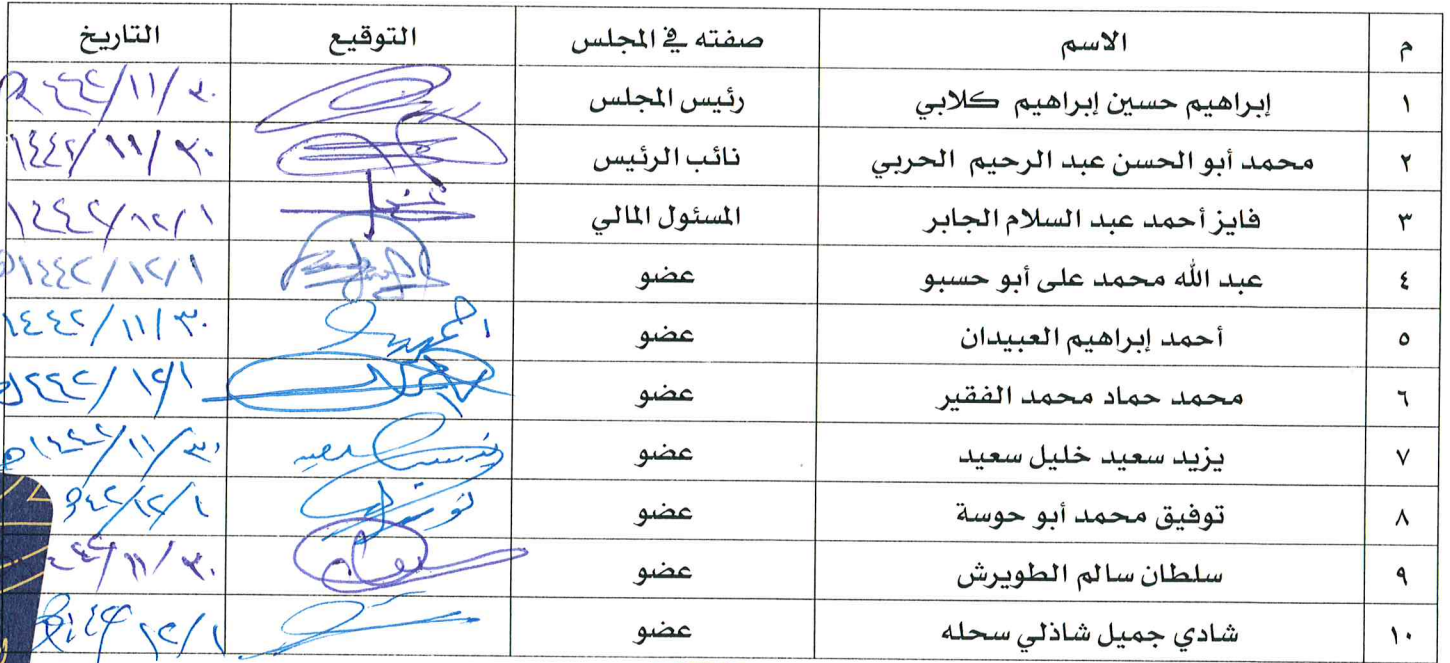 م الاسم صفته في المجلس التوقيع التاريخ
١ إبراهيم حسين إبراهيم كلابي رئيس المجلس ١١/٣٠
٢ محمد أبو الحسن عبد الرحيم الحربي نائب الرئيس ١٤٤٢/١١/٣٠
٣ فايز أحمد عبد السلام الجابر المسئول المالي ١٤٤٢/١٢/١
٤ عبد الله محمد على أبو حسبو عضو ١٤٤٢/١٢/١
٥ أحمد إبراهيم العبيدان عضو ١٤٤٢/١١/٣٠
٦ محمد حماد محمد الفقير عضو ١٤٤٢/١٢/١
٧ يزيد سعيد خليل سعيد عضو ١٤٤٢/١١/٣٠
٨ توفيق محمد أبو حوسة عضو ٤٢/١٢/١
٩ سلطان سالم الطويرش عضو ١١/٣٠
١٠ شادي جميل شاذلي سحله عضو ١٢/١